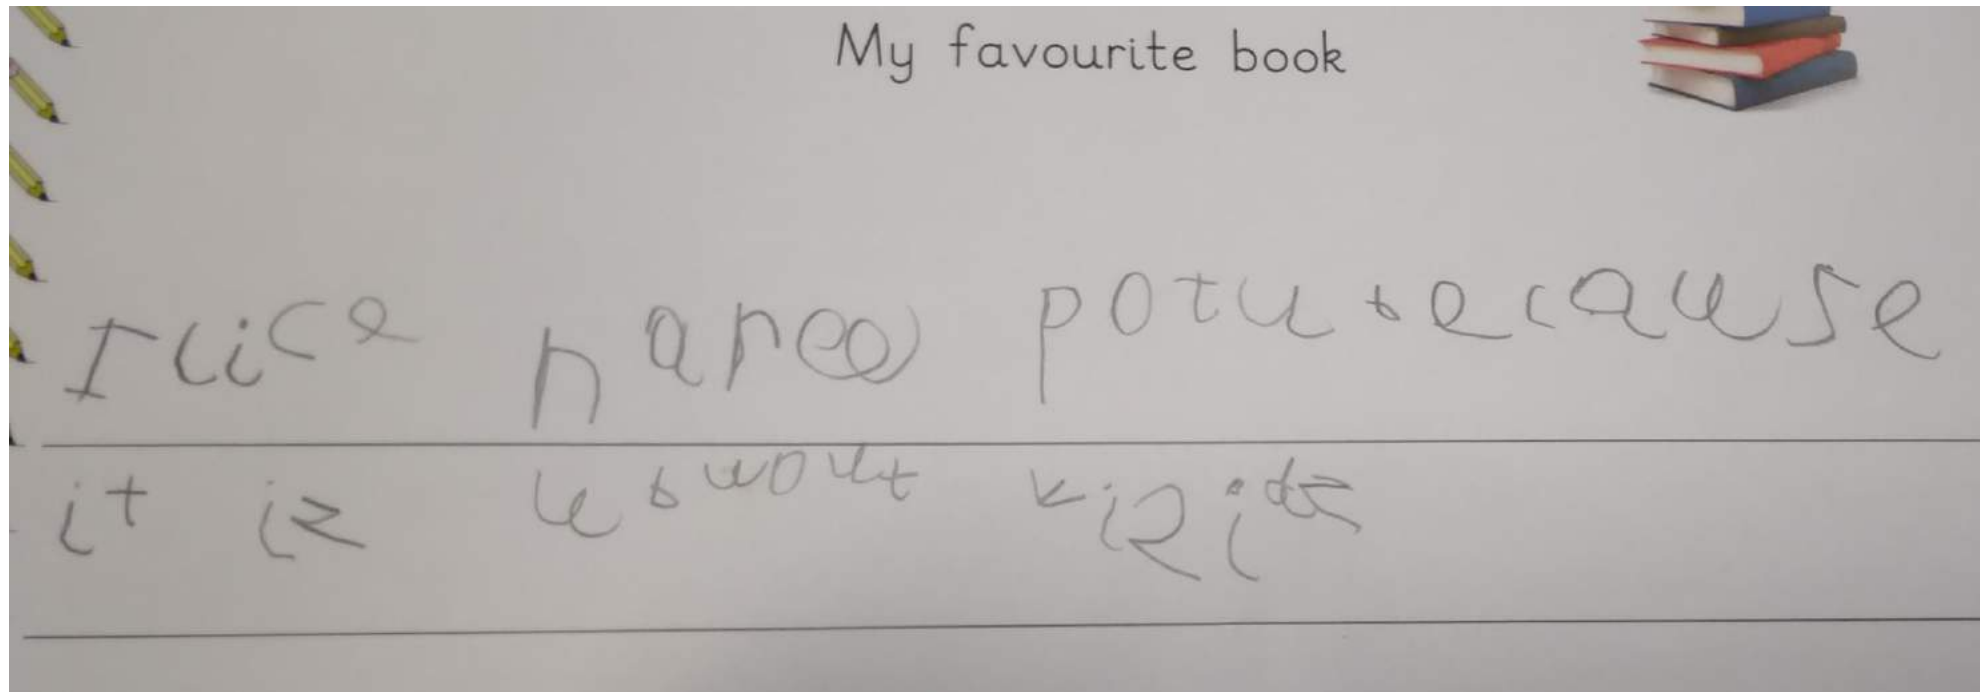 My favourite book
I lice hareo potu because
it is ubwout vizitz